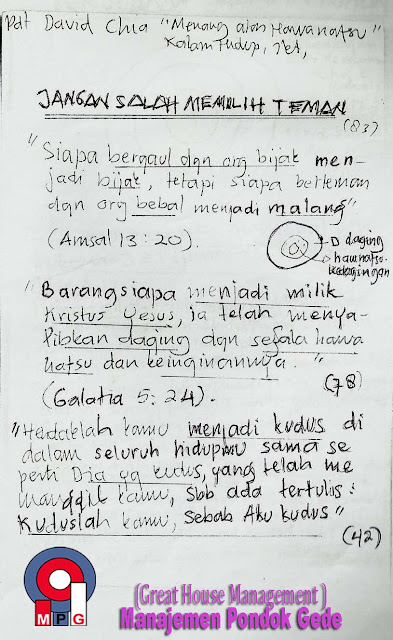 pdt David Chia "Menang atas Hawanafsu"
Kalam Hidup,
JANGAN SALAH MEMILIH TEMAN
(83)
"Siapa bergaul dgn org bijak men-
jadi bijak, tetapi siapa berteman
dgn org bebal menjadi malang"
(Amsal 13:20).
D daging
hawnafsu
kedagingan
"Barangsiapa menjadi milik
Kristus Yesus, ia telah menya-
libkan daging dgn segala hawa
natsu dan keinginannya."
(78)
(Galatia 5:24).
"Hedaklah kamu menjadi kudus di
dalam seluruh hidupmu sama se
perti Dia yg kudus, yang telah me
manggil kamu, sbb ada tertulis:
Kuduslah kamu, sebab Aku kudus"
(42)
MPG
(Great House Management)
Manajemen Pondok Gede